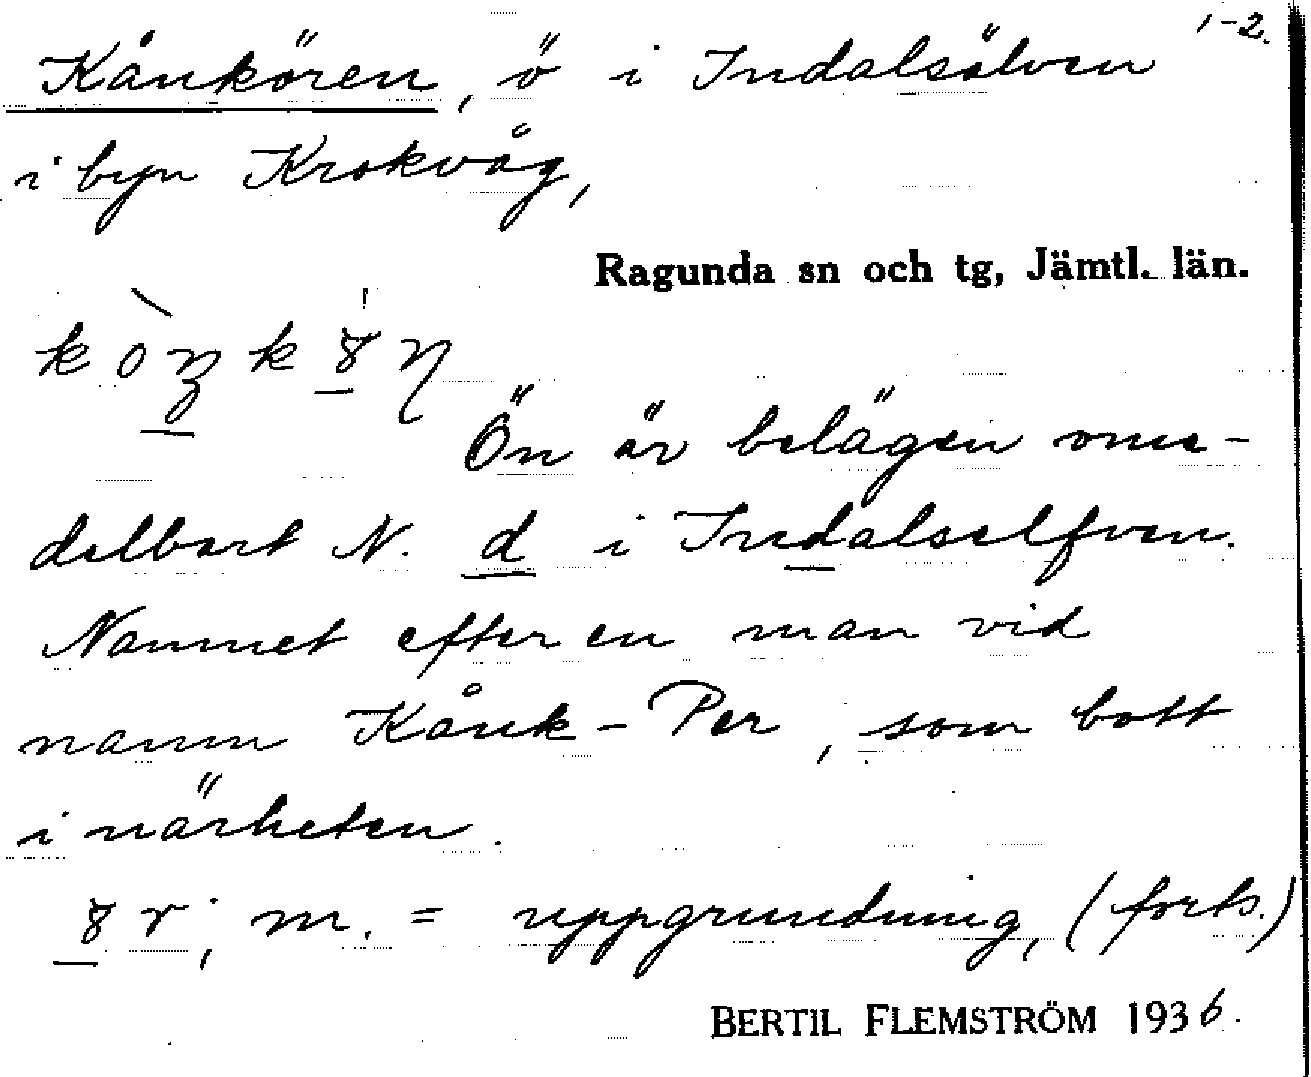 1-2.
Kånkören, ö i Indalsälven
i byn Krokvåg,
Ragunda sn och tg, Jämtl. län.
Ön är belägen ome-
delbart N. d i Indalselfven.
Namnet efter en man vid
namn Kånk-Per, som bott
i närheten.
m. = uppgrundning, (forts.)
BERTIL FLEMSTRÖM 1936.